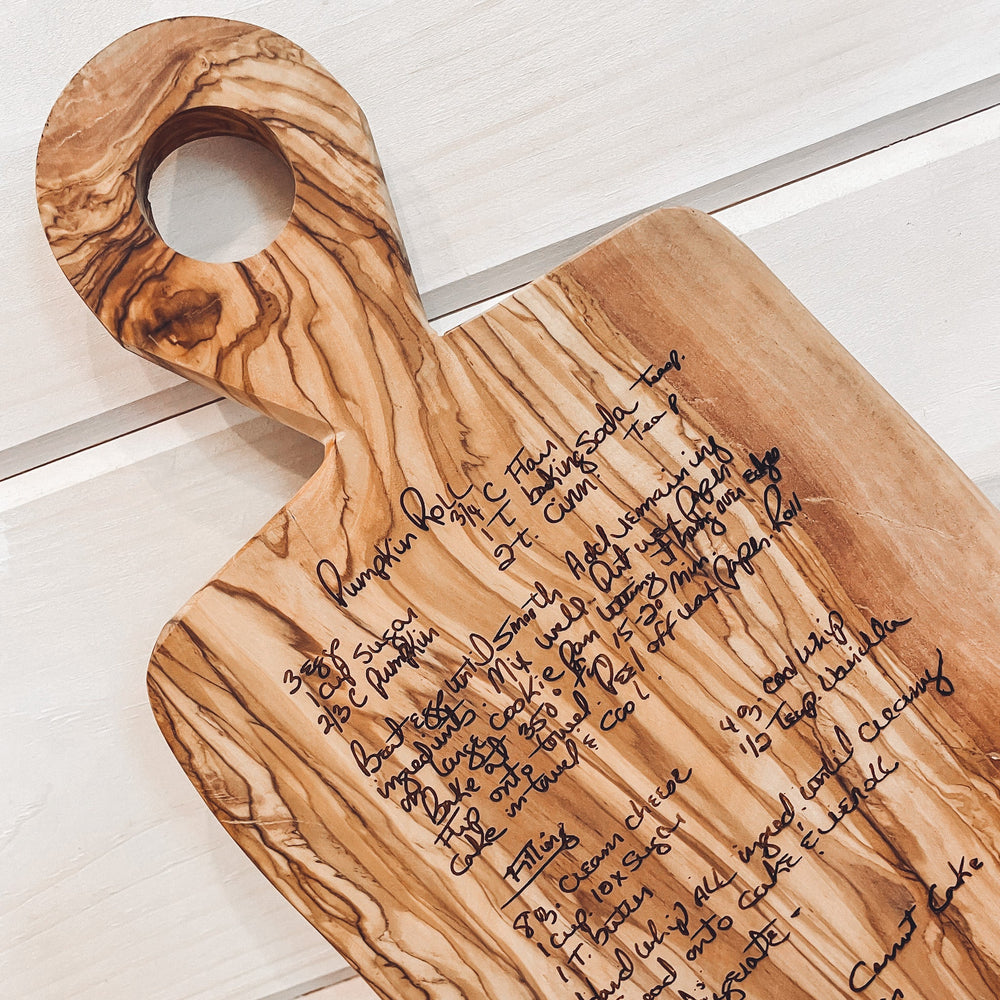 Pumpkin Roll
3 Eggs 3/4 C Flour
1 cup Sugar 1 T baking Soda Teasp.
2/3 C pumpkin 2 t. Cinn. Teasp
Beat Eggs until Smooth Add remaining
ingredients. Mix well. Put wax paper
on large cookie pan letting it hang over Edges
Bake at 350° for 15-20 min
Flip onto towel. Peel off wax paper. Roll
Cake in towel & cool.
Filling
8 oz. cream cheese 4 oz. cool whip
1 cup 10x Sugar 1/2 Teasp. Vanilla
1 T. butter
Hand whip ALL ingred. until creamy
onto cake & reroll
Carrot Cake